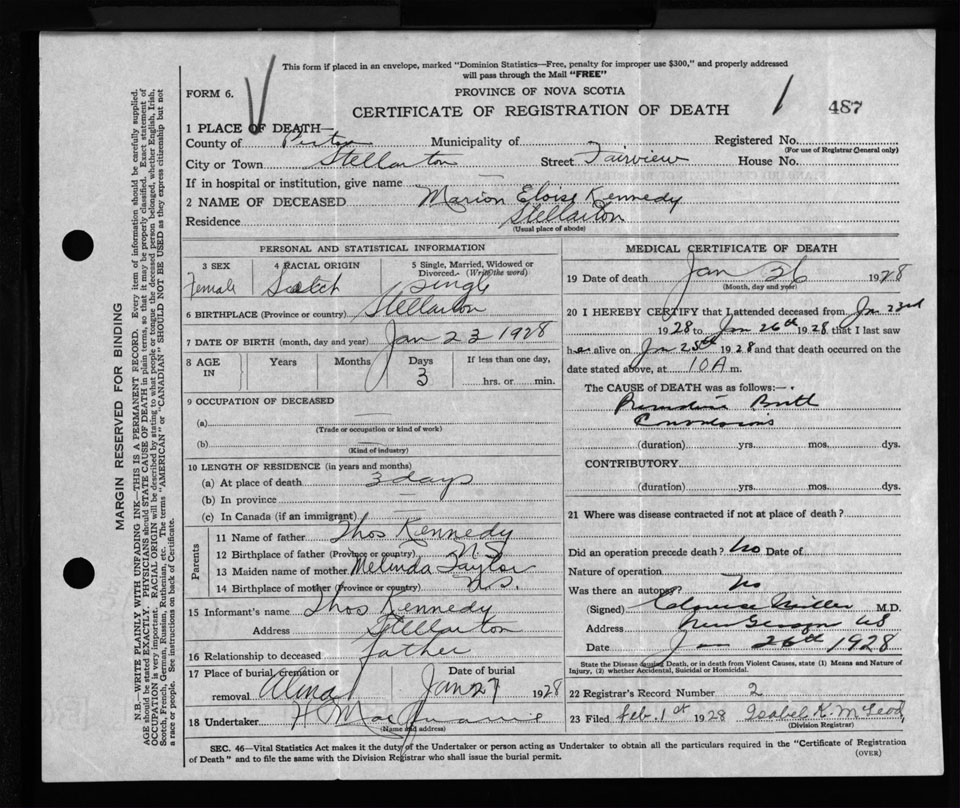 This form if placed in an envelope, marked "Dominion Statistics—Free, penalty for improper use $300," and properly addressed
will pass through the Mail "FREE"
FORM 6.
PROVINCE OF NOVA SCOTIA
CERTIFICATE OF REGISTRATION OF DEATH
487
1 PLACE OF DEATH—
County of Pictou Municipality of Registered No.
(For use of Registrar General only)
City or Town Stellarton Street Fairview House No.
If in hospital or institution, give name —
2 NAME OF DECEASED Marion Eloise Kennedy
Residence Stellarton
(Usual place of abode)
PERSONAL AND STATISTICAL INFORMATION
3 SEX 4 RACIAL ORIGIN 5 Single, Married, Widowed or Divorced. (Write the word)
Female Scotch Single
6 BIRTHPLACE (Province or country) Stellarton
7 DATE OF BIRTH (month, day and year) Jan 23 1928
8 AGE IN Years Months Days If less than one day,
3 hrs. or min.
9 OCCUPATION OF DECEASED
(a) —
(Trade or occupation or kind of work)
(b) —
(Kind of industry)
10 LENGTH OF RESIDENCE (in years and months)
(a) At place of death 3 days
(b) In province —
(c) In Canada (if an immigrant) —
Parents
11 Name of father Thos Kennedy
12 Birthplace of father (Province or country) N.S.
13 Maiden name of mother Melinda Taylor
14 Birthplace of mother (Province or country) N.S.
15 Informant's name Thos Kennedy
Address Stellarton
16 Relationship to deceased father
17 Place of burial, cremation or removal Alma Date of burial Jan 27 1928
18 Undertaker
(Name and address)
MEDICAL CERTIFICATE OF DEATH
19 Date of death Jan 26 1928
(Month, day and year)
20 I HEREBY CERTIFY that I attended deceased from Jan 23rd
1928 to Jan 26th 1928 that I last saw
her alive on Jan 25th 1928 and that death occurred on the
date stated above, at 10 A m.
The CAUSE of DEATH was as follows:—
Birth
Convulsions
(duration) yrs. mos. dys.
CONTRIBUTORY
(duration) yrs. mos. dys.
21 Where was disease contracted if not at place of death?
Did an operation precede death? No Date of
Nature of operation
Was there an autopsy? No
(Signed) Clarence Miller M.D.
Address New Glasgow NS
Date Jan 26th 1928
State the Disease causing Death, or in death from Violent Causes, state (1) Means and Nature of
Injury, (2) whether Accidental, Suicidal or Homicidal.
22 Registrar's Record Number 2
23 Filed Feb. 1st 1928 Isabel K. McLeod
(Division Registrar)
SEC. 46—Vital Statistics Act makes it the duty of the Undertaker or person acting as Undertaker to obtain all the particulars required in the "Certificate of Registration
of Death" and to file the same with the Division Registrar who shall issue the burial permit.
(OVER)
MARGIN RESERVED FOR BINDING
N.B.—WRITE PLAINLY WITH UNFADING INK—THIS IS A PERMANENT RECORD. Every item of information should be carefully supplied.
AGE should be stated EXACTLY. PHYSICIANS should STATE CAUSE OF DEATH in plain terms, so that it may be properly classified. Exact statement of
OCCUPATION is very important. RACIAL ORIGIN will be described by stating to what people or tongue the deceased person belonged, whether English, Irish,
Scotch, French, German, Russian, Ruthenian, etc. The terms "AMERICAN" or "CANADIAN" SHOULD NOT BE USED as they express citizenship but not
a race or people. See instructions on back of Certificate.